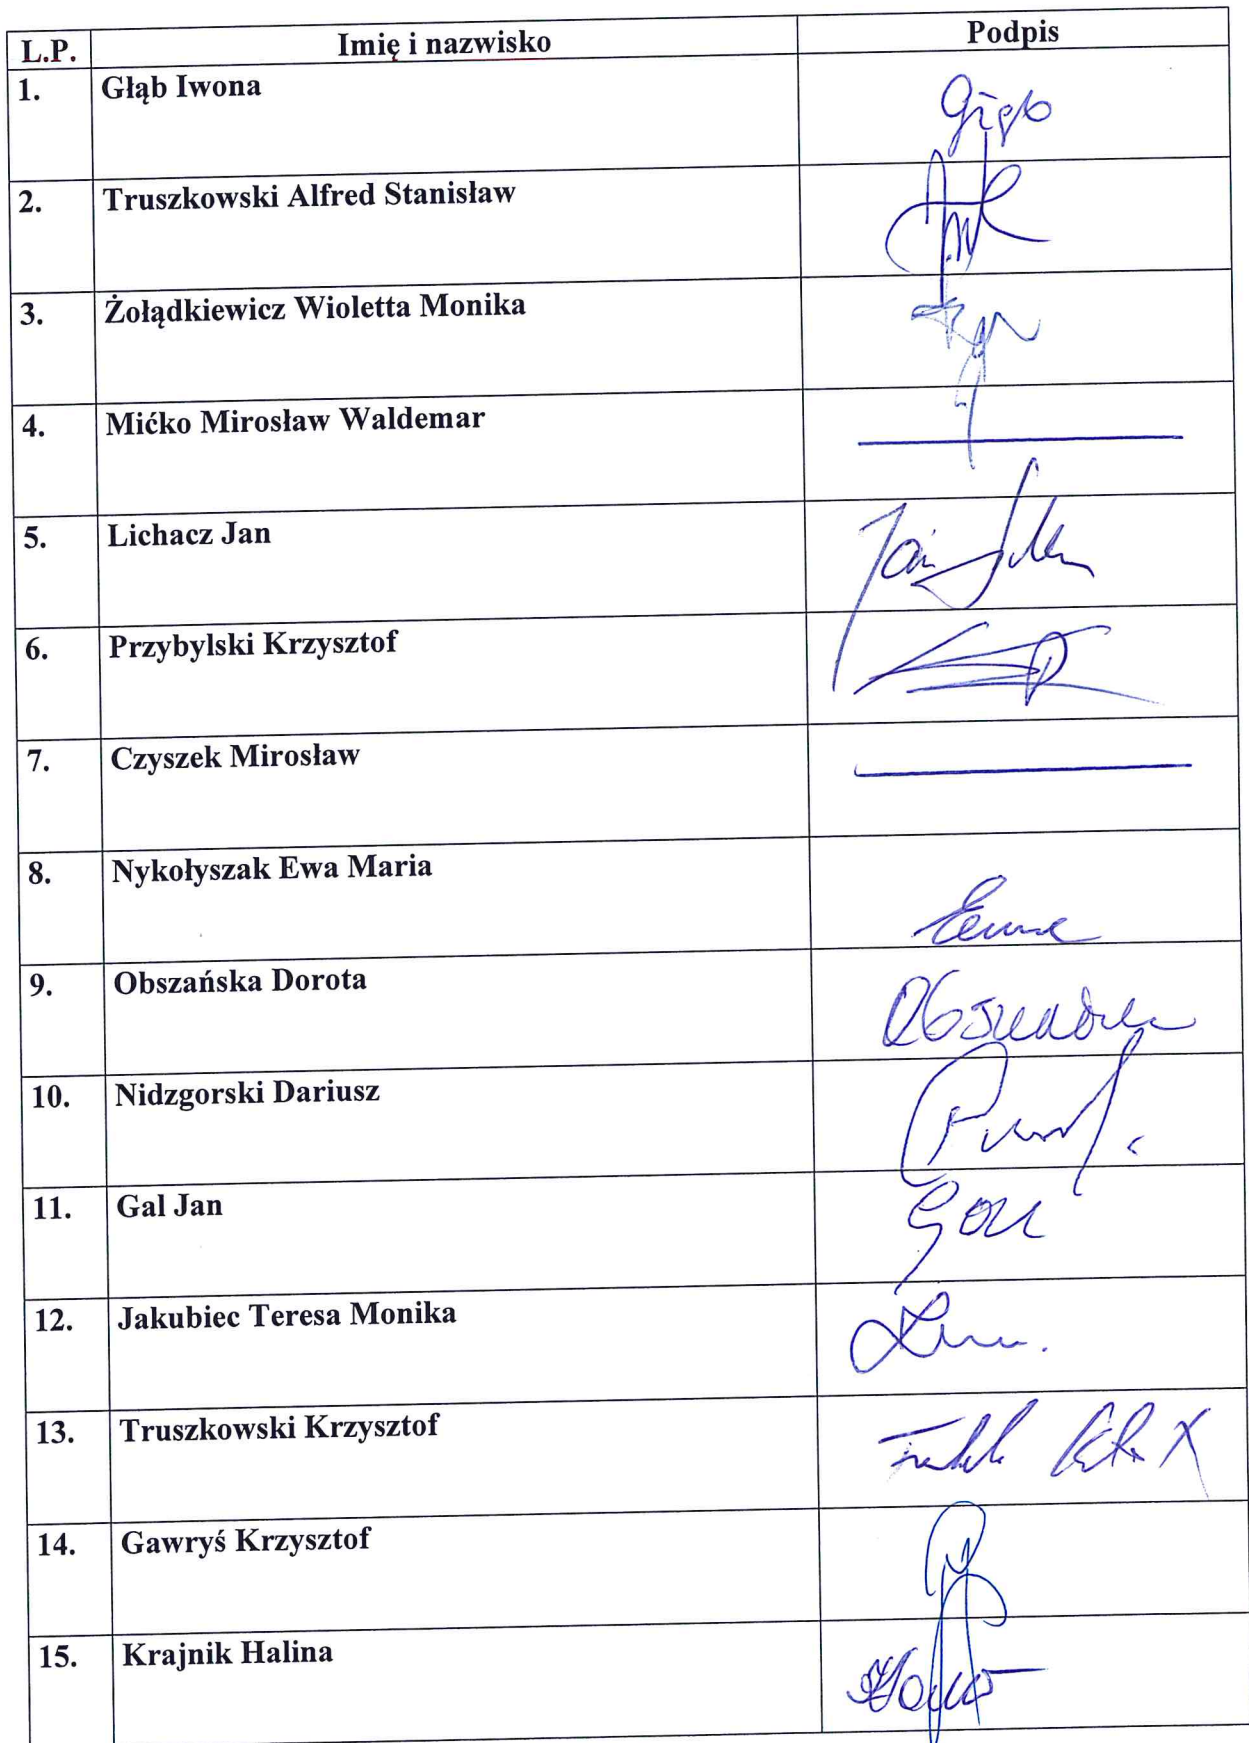 L.P. Imię i nazwisko Podpis
1. Głąb Iwona Głąb
2. Truszkowski Alfred Stanisław
3. Żołądkiewicz Wioletta Monika
4. Mićko Mirosław Waldemar
5. Lichacz Jan Jan
6. Przybylski Krzysztof
7. Czyszek Mirosław
8. Nykołyszak Ewa Maria
9. Obszańska Dorota
10. Nidzgorski Dariusz
11. Gal Jan
12. Jakubiec Teresa Monika
13. Truszkowski Krzysztof
14. Gawryś Krzysztof
15. Krajnik Halina